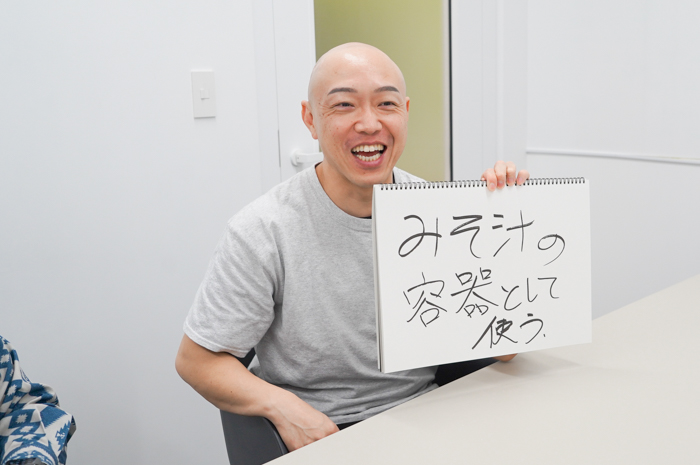 みそ汁の
容器として
使う.